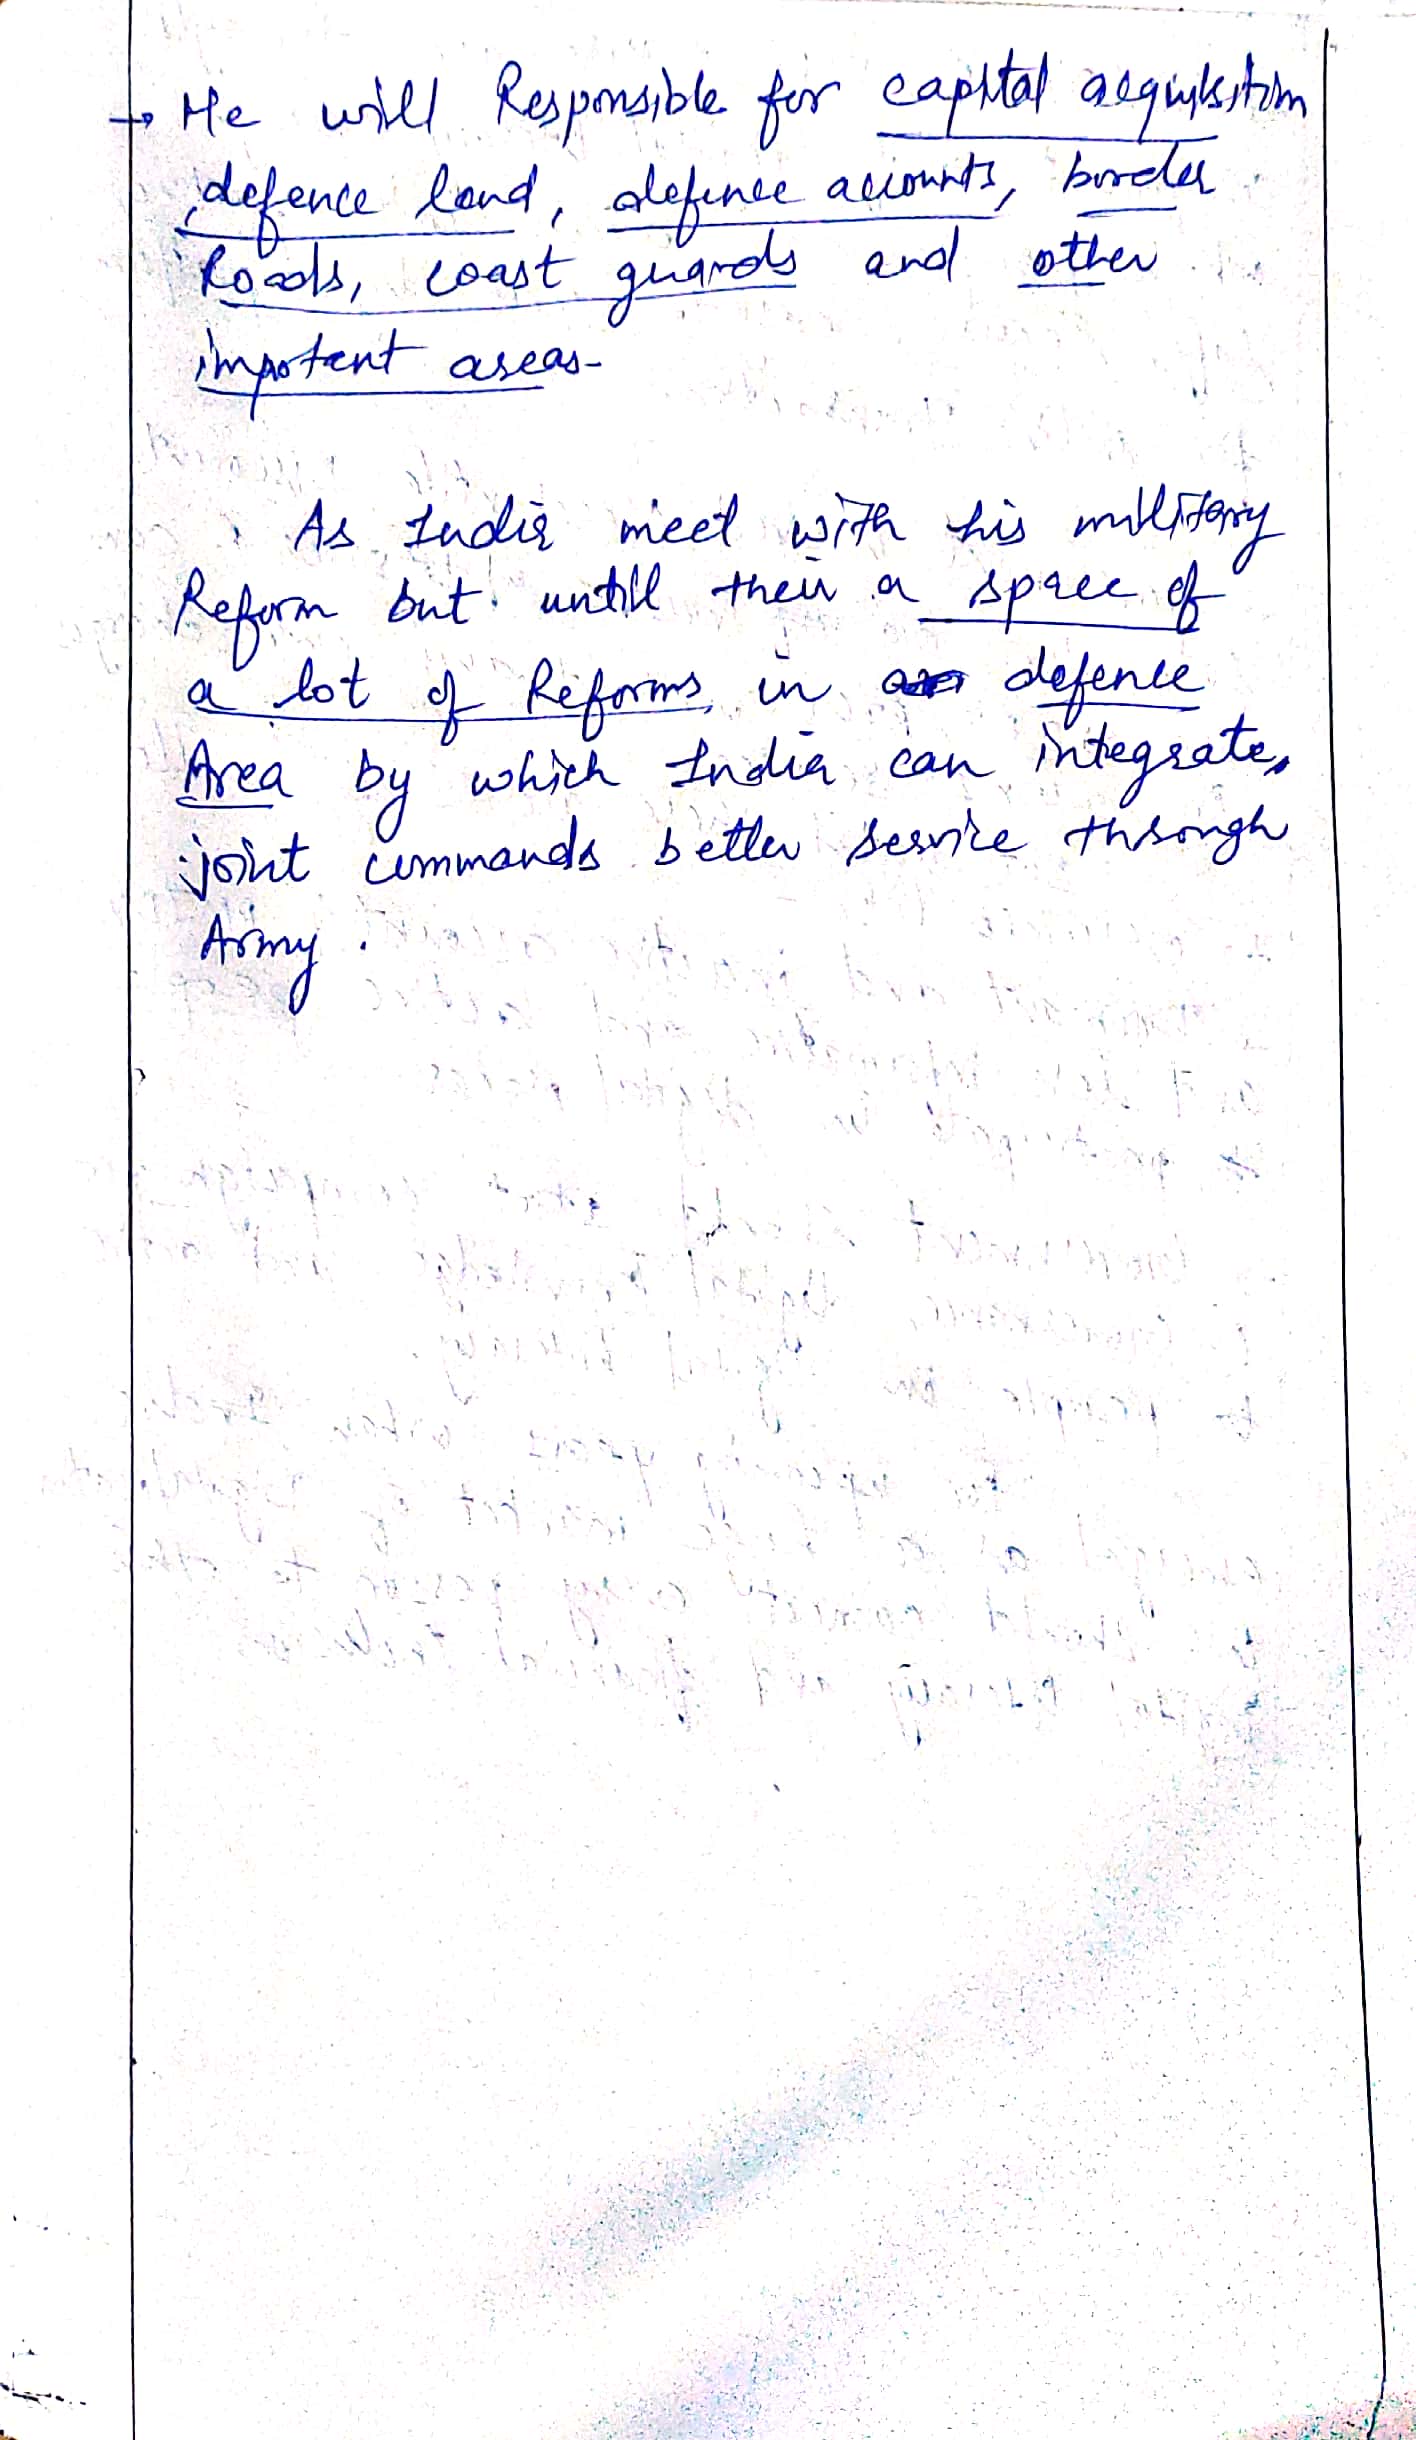 → He will Responsible for capital acquisition
, defence land, defence accounts, border
Roads, coast guards and other
impotant areas-
As India meet with his military
Reform but untill their a space of
a lot of Reforms in defence
Area by which India can integrate,
joint commands better service through
Army.